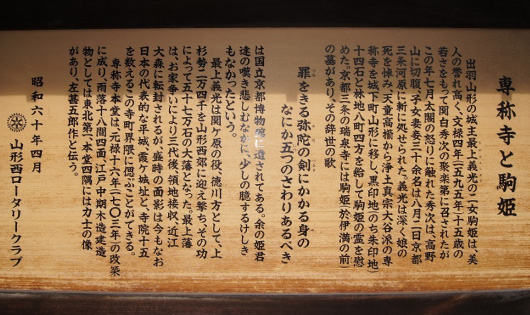 専称寺と駒姫
出羽山形の城主最上義光の二女駒姫は、美
人の誉れ高く、文禄四年(一五九五年)十五歳の
若さをもって関白秀次の衆妾第に召されたが
この年七月太閤の怒りに触れた秀次は、高野
山に切腹、子女妻妾三十余名は八月二日京都
三条河原に斬に処せられた。義光は深く娘の
死を悼み、天童高擶から浄土真宗大谷派の専
称寺を城下町山形に移し、黒印地(のち朱印地)
十四石と林地八町四方を給して駒姫の霊を慰
めた。京都三条の瑞泉寺には駒姫於伊満の前)
の墓があり、その辞世の歌
罪をきる弥陀の剣にかかる身の
なにか五つのさわりあるべき
は国立京都博物館に遺されてある。余の姫君
達の嘆き悲しむなかに、少しの臆するけしき
もなかったという。
最上義光は関ケ原の役、徳川方として、上
杉勢二万四千を山形西郊に迎え撃ち、その功
によって五十七万石の大藩となった。最上藩
は、お家争いにより三代後領地接収、近江
大森に転封されるが、盛時の面影は今もなお
日本の代表的な平城、霞ケ城址と、寺院十五
を数えるこの寺町界隈に偲ぶことができる。
専称寺本堂は元禄十六年(一七〇三年)の改築
に成り、雨落十八間四面、江戸中期木造建造
物としては東北第一、本堂四隅には力士の像
があり、左甚五郎作と伝う。
昭和六十年四月
山形西ロータリークラブ